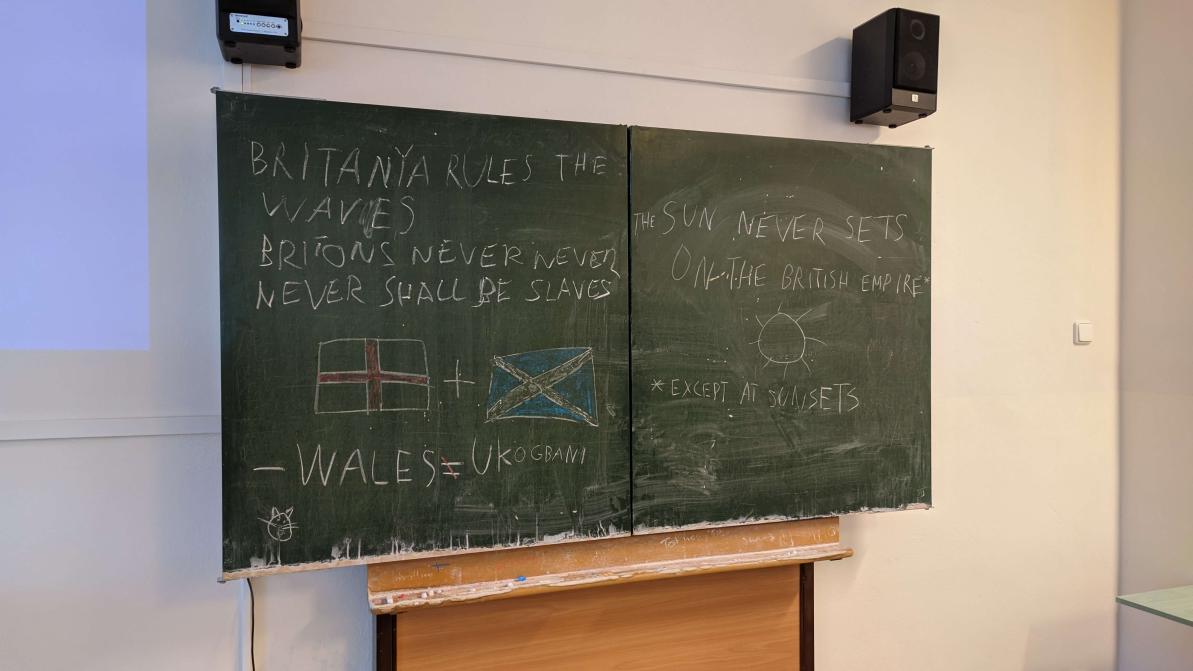 BRITANYA RULES THE
WAVES
BRITONS NEVER NEVER
NEVER SHALL BE SLAVES
+
- WALES = UKOGBANI
THE SUN NEVER SETS
ON THE BRITISH EMPIRE*
*EXCEPT AT SUNSETS